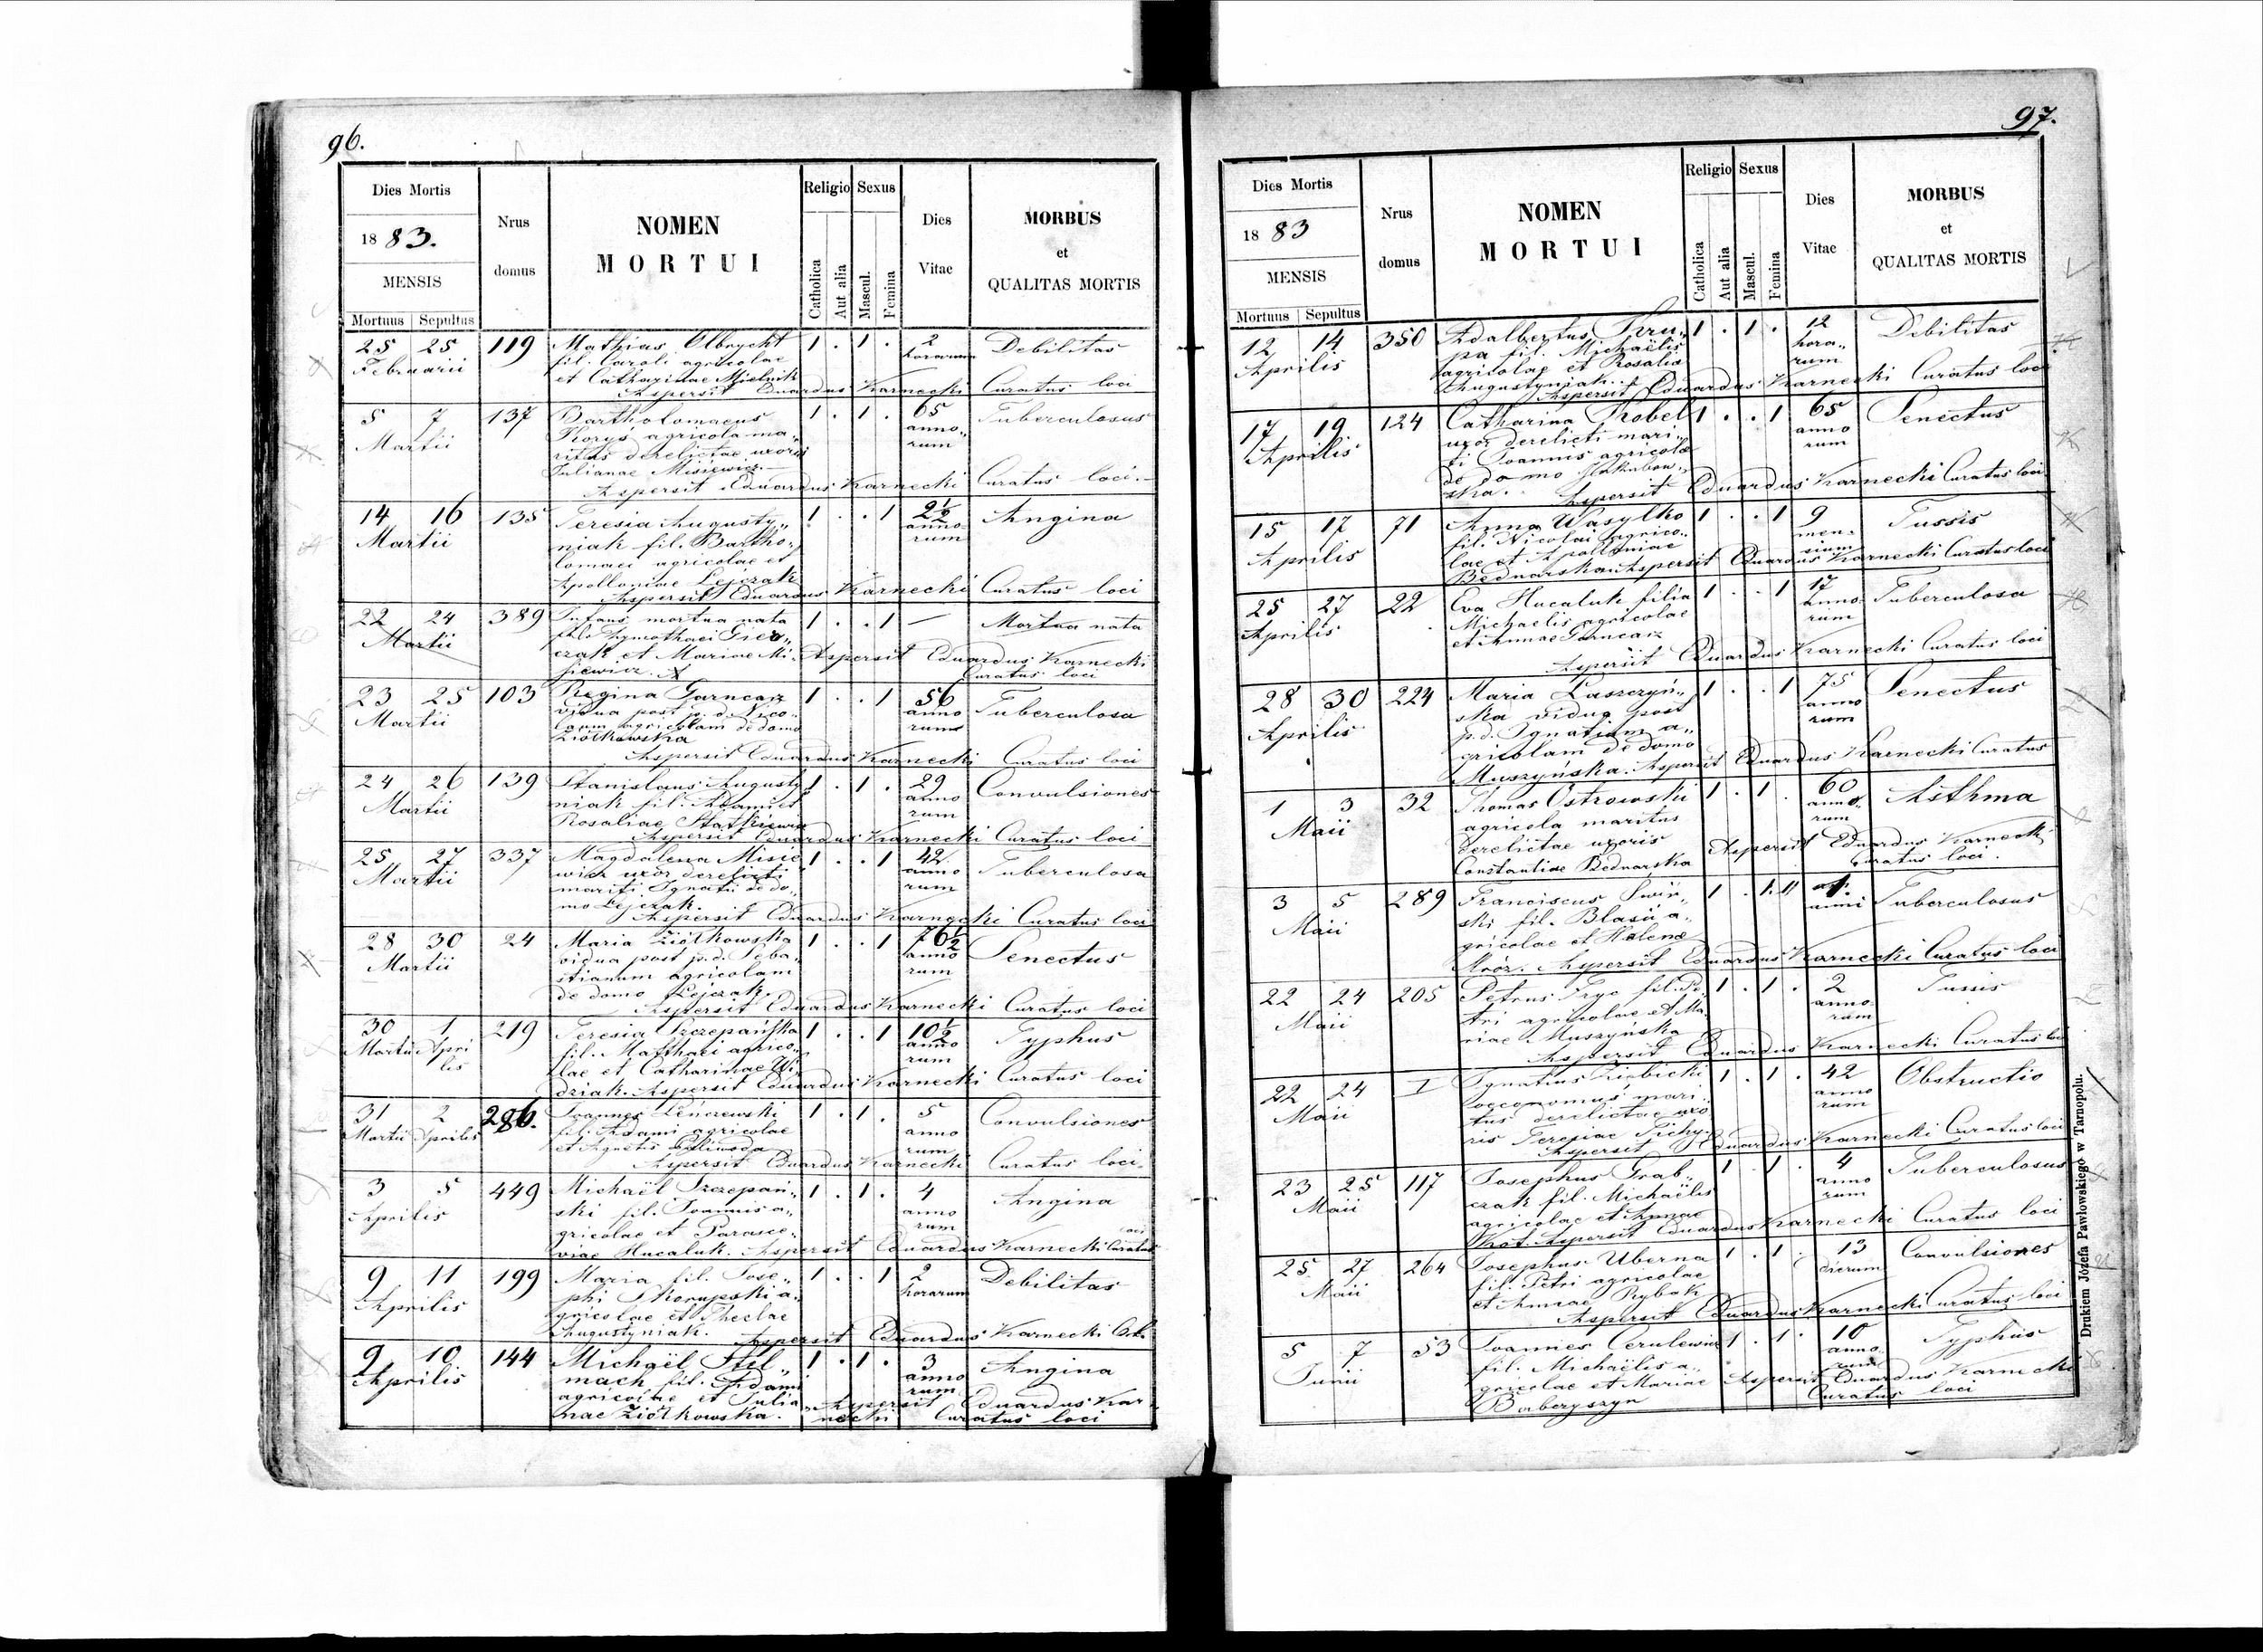 96.
Dies Mortis
1883.
MENSIS
Mortuus Sepultus
Nrus domus
NOMEN MORTUI
Religio
Catholica
Aut alia
Sexus
Mascul.
Femina
Dies Vitae
MORBUS et QUALITAS MORTIS
25 25 119 Mathias Olbrycht 1 . 1 . 2 Debilitas
Februarii fil. Caroli agricolae horarum
et Catharinae Mielnik
Aspersit Eduardus Karnecki Curatus loci
5 7 137 Bartholomaeus 1 . 1 . 65 Tuberculosus
Martii agricola ma„ anno„
ritus derelictae uxoris rum
Julianae Misiewicz.
Aspersit Eduardus Karnecki Curatus loci.
14 16 135 Teresia Augusty„ 1 . . 1 2½ Angina
Martii niak fil. Bartho„ anno
lomaei agricolae et rum
Apolloniae Lejczak
Aspersit Eduardus Karnecki Curatus loci
22 24 389 Infans mortua nata 1 . . 1 — Mortua nata
Martii Tymothaei
czak et Mariae Mi„ Aspersit Eduardus Karnecki
siewicz. Curatus loci
23 25 103 Regina Garncarz 1 . . 1 56 Tuberculosa
Martii vidua post p. d. Nico„ anno
laum agricolam de domo rum
Ziółkowska
Aspersit Eduardus Karnecki Curatus loci
24 26 139 Stanislaus Augusty 1 . 1 . 29 Convulsiones
Martii niak fil. Adami et anno
Rosaliae rum
Aspersit Eduardus Karnecki Curatus loci
25 27 337 Magdalena Misie 1 . . 1 42 Tuberculosa
Martii wicz uxor derelicti anno
mariti Ignatii de do„ rum
mo Lejczak.
Aspersit Eduardus Karnecki Curatus loci
28 30 24 Maria Ziółkowska 1 . . 1 76½ Senectus
Martii vidua post p. d. Seba„ anno
stianum agricolam rum
de domo Lejczak.
Aspersit Eduardus Karnecki Curatus loci
30 1 219 Teresia Szczepańska 1 . . 1 10½ Typhus
Martii Apri fil. Matthaei agrico„ anno
lis lae et Catharinae Wi„ rum
dziak. Aspersit Eduardus Karnecki Curatus loci
31 2 286. Joannes 1 . 1 . 5 Convulsiones
Martii Aprilis fil. Adami agricolae anno
et Agnetis rum
Aspersit Eduardus Karnecki Curatus loci.
3 5 449 Michaël Szczepań„ 1 . 1 . 4 Angina
Aprilis ski fil. Joannis a„ anno
gricolae et Parasce„ rum
viae Hucaluk. Aspersit Eduardus Karnecki Curatus loci
9 11 199 Maria fil. Jose„ 1 . . 1 2 Debilitas
Aprilis phi Skorupski a„ horarum
gricolae et Theclae
Augustyniak. Aspersit Eduardus Karnecki
9 10 144 Michaël Stel„ 1 . 1 . 3 Angina
Aprilis mach fil. Adami anno
agricolae et Julia„ rum Aspersit Eduardus Kar„
nae Ziółkowska. necki Curatus loci
97.
Dies Mortis
1883
MENSIS
Mortuus Sepultus
Nrus domus
NOMEN MORTUI
Religio
Catholica
Aut alia
Sexus
Mascul.
Femina
Dies Vitae
MORBUS et QUALITAS MORTIS
12 14 350 Adalbertus Kru„ 1 . 1 . 12 Debilitas
Aprilis pa fil. Michaëlis hora„
agricolae et Rosalis rum
Augustyniak. Aspersit Eduardus Karnecki Curatus loci
17 19 124 Catharina 1 . . 1 65 Senectus
Aprilis uxor derelicti mari„ anno
ti Joannis agricolae rum
de domo Jakubow„
ska. Aspersit Eduardus Karnecki Curatus loci
15 17 71 Anna Wasylko 1 . . 1 9 Tussis
Aprilis fil. Nicolai agrico„ men„
lae et Apolloniae sium
Bednarska. Aspersit Eduardus Karnecki Curatus loci
25 27 22 Eva Hucaluk filia 1 . . 1 17 Tuberculosa
Aprilis Michaelis agricolae anno
et Annae Garncarz rum
Aspersit Eduardus Karnecki Curatus loci
28 30 224 Maria Laszczyń„ 1 . . 1 75 Senectus
Aprilis ska vidua post anno
p. d. Ignatium a„ rum
gricolam de domo
Muszyńska. Aspersit Eduardus Karnecki Curatus
1 3 32 Thomas Ostrowski 1 . 1 . 60 Asthma
Maii agricola maritus anno
derelictae uxoris rum Aspersit Eduardus Karnecki
Constantiae Bednarska Curatus loci.
3 5 289 Franciscus Swir„ 1 . 1 1. Tuberculosus
Maii ski fil. Blasii a„ anni
gricolae et Helenae
Móóz. Aspersit Eduardus Karnecki Curatus loci
22 24 205 Petrus Fryc fil. Pe 1 . 1 . 2 Tussis
Maii tri agricolae et Ma„ anno
riae Muszyńska rum
Aspersit Eduardus Karnecki Curatus loci
22 24 I Ignatius 1 . 1 . 42 Obstructio
Maii oeconomus mari„ anno
tus derelictae uxo rum
ris Teresiae
Aspersit Eduardus Karnecki Curatus loci
23 25 117 Josephus Grab„ 1 . 1 . 4 Tuberculosus
Maii czak fil. Michaëlis anno
agricolae et Annae rum
Kot. Aspersit Eduardus Karnecki Curatus loci
25 27 264 Josephus Uberna 1 . 1 . 13 Convulsiones
Maii fil. Petri agricolae dierum
et Annae Rybak
Aspersit Eduardus Karnecki Curatus loci
5 7 53 Joannes Cerulewicz 1 . 1 . 10 Typhus
Junii fil. Michaëlis a„ anno
gricolae et Mariae rum Aspersit Eduardus Karnecki
Baberyszyn Curatus loci
Drukiem Józefa Pawłowskiego w Tarnopolu.